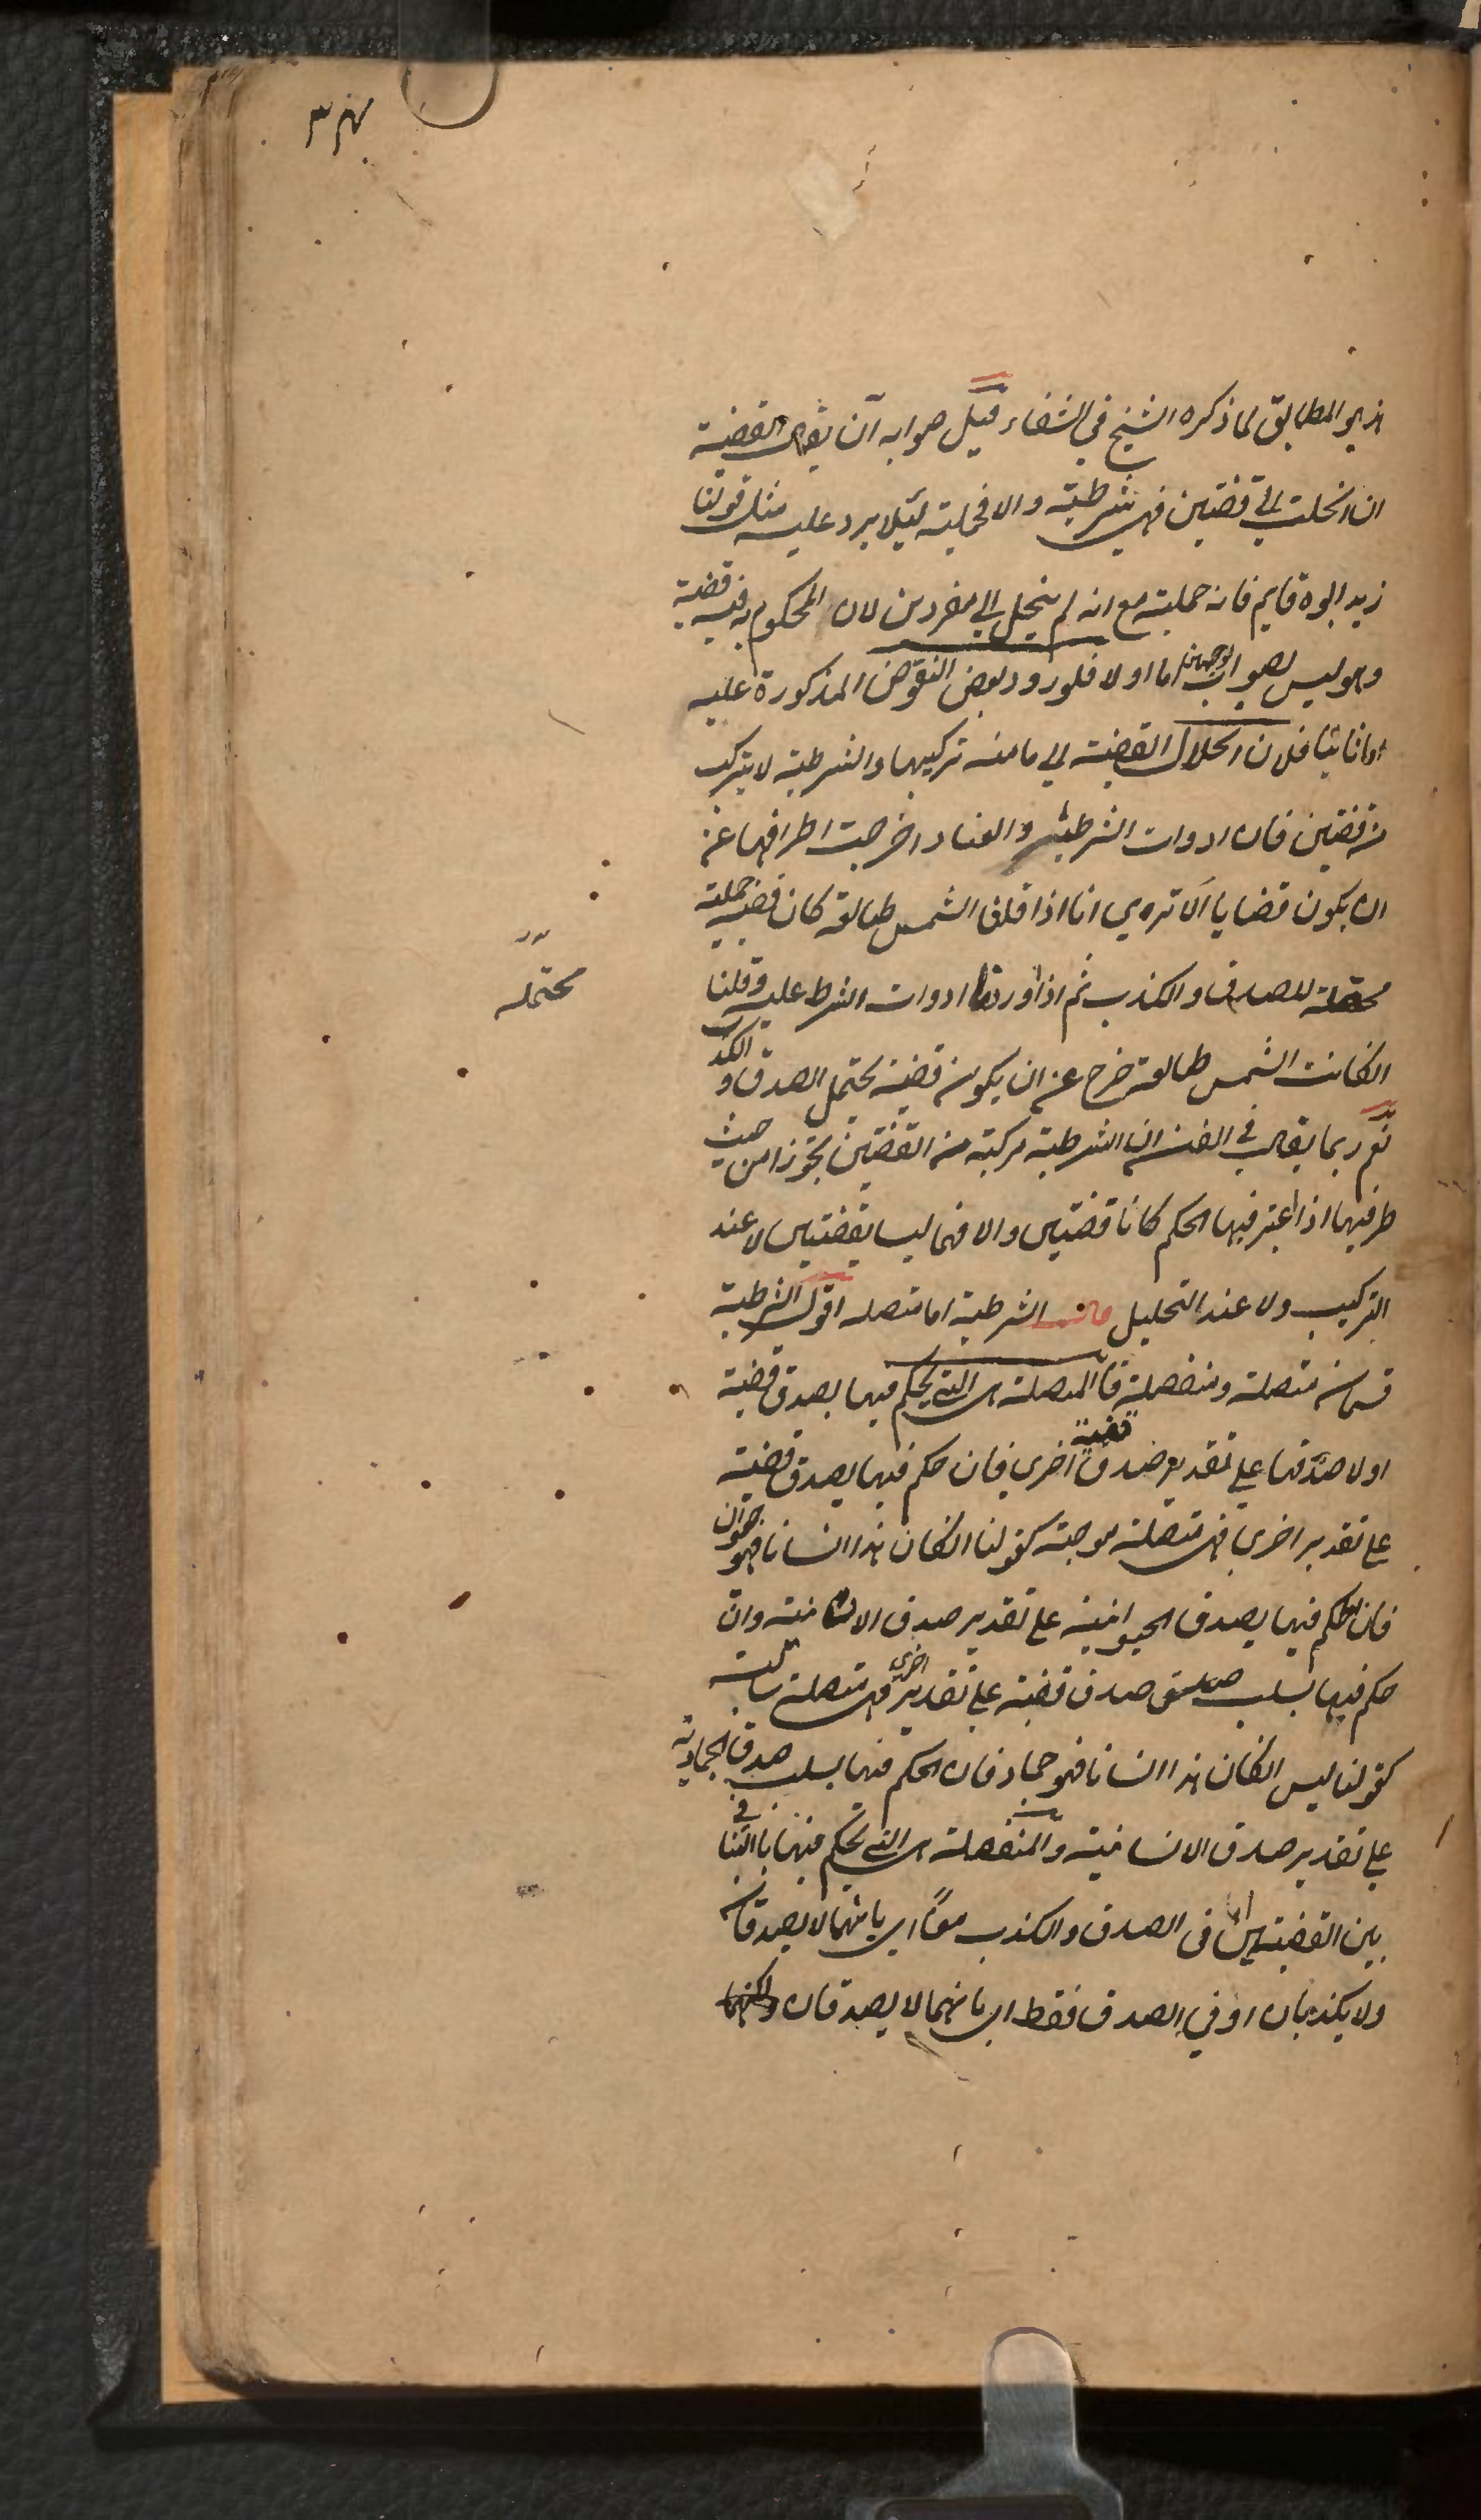 هذا هو المطابق لما ذكره الشيخ في الشفاء قيل صوابه ان يقال القضية
ان انحلت الى قضيتين فهي شرطية والا فحملية ليلا يرد عليه مثل قولنا
زيد ابوه قايم فانه حملية مع انه لم ينحل الى مفردين لان المحكوم به فيه قضية
وهو ليس بصواب لوجهين اما اولا فلورود بعض النقوض المذكورة عليه
اما ثانيا فلان انحلال القضية الى ما منه تركيبها والشرطية لا يتركب
من قضيتين فان ادوات الشرطية والعناد اخرجت اطرافها عن
ان يكون قضايا الا ترى انا اذا قلنا الشمس طالعة كان قضية حملية
محتملة للصدق والكذب ثم اذا اوردنا ادوات الشرط عليه وقلنا
محتملة
ان كانت الشمس طالعة خرج عن ان يكون قضية يحتمل الصدق والكذب
نعم ربما يقال في الفن ان الشرطية مركبة من القضيتين تجوزا من حيث
طرفيها اذا اعتبر فيها الحكم كانا قضيتين والا فهما ليسا بقضيتين لا عند
التركيب ولا عند التحليل قال الشرطية اما متصله اقول الشرطية
قسمان متصلة ومنفصلة فالمتصلة هي التي يحكم فيها بصدق قضية
او لا صدقها على تقدير صدق قضية اخرى فان حكم فيها بصدق قضية
على تقدير اخرى فهي متصلة موجبة كقولنا ان كان هذا انسانا فهو حيوان
فان الحكم فيها بصدق الحيوانية على تقدير صدق الانسانية وان
حكم فيها بسلب صدق قضية على تقدير اخرى فهي متصلة سالبة
كقولنا ليس ان كان هذا انسانا فهو جماد فان الحكم فيها بسلب صدق الجمادية
على تقدير صدق الانسانية والمنفصلة هي التي يحكم فيها بالتنافي
بين القضيتين اما في الصدق والكذب معا اي بانهما لا يصدقان
ولا يكذبان او في الصدق فقط اي بانهما لا يصدقان ولكنهما